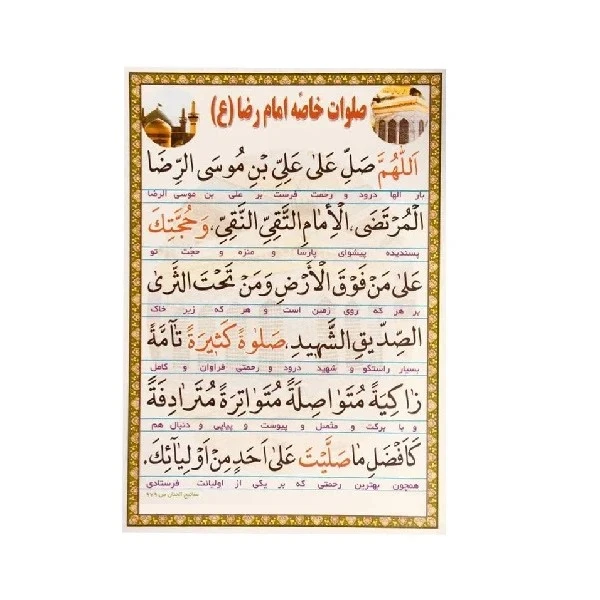 صلوات خاصّه امام رضا (ع)
اَللّٰهُمَّ صَلِّ عَلىٰ عَلِيِّ بْنِ مُوسَى الرِّضَا
بار الها درود و رحمت فرست بر علی بن موسی الرضا
الْمُرْتَضَى، الْاِمٰامِ التَّقِيِّ النَّقِيِّ، وَ حُجَّتِكَ
پسندیده پیشوای پارسا و منزه و حجت تو
عَلىٰ مَنْ فَوْقَ الْأَرْضِ وَمَنْ تَحْتَ الثَّرىٰ
بر هر که روی زمین است و هر که زیر خاک
الصِّدّيقِ الشَّهيدِ، صَلوٰةً كَثيرَةً تٰآمَّةً
بسیار راستگو و شهید درود و رحمتی فراوان و کامل
زٰاكِيَةً مُتَوٰاصِلَةً مُتَوٰاتِرَةً مُتَرٰادِفَةً
و با برکت و متصل و پیوست و پیاپی و دنبال هم
كَأَفْضَلِ مٰا صَلَّيْتَ عَلىٰ اَحَدٍ مِنْ اَوْلِيٰآئِكَ.
همچون بهترین رحمتی که بر یکی از اولیائت فرستادی
مفاتیح الجنان ص ۹۷۹